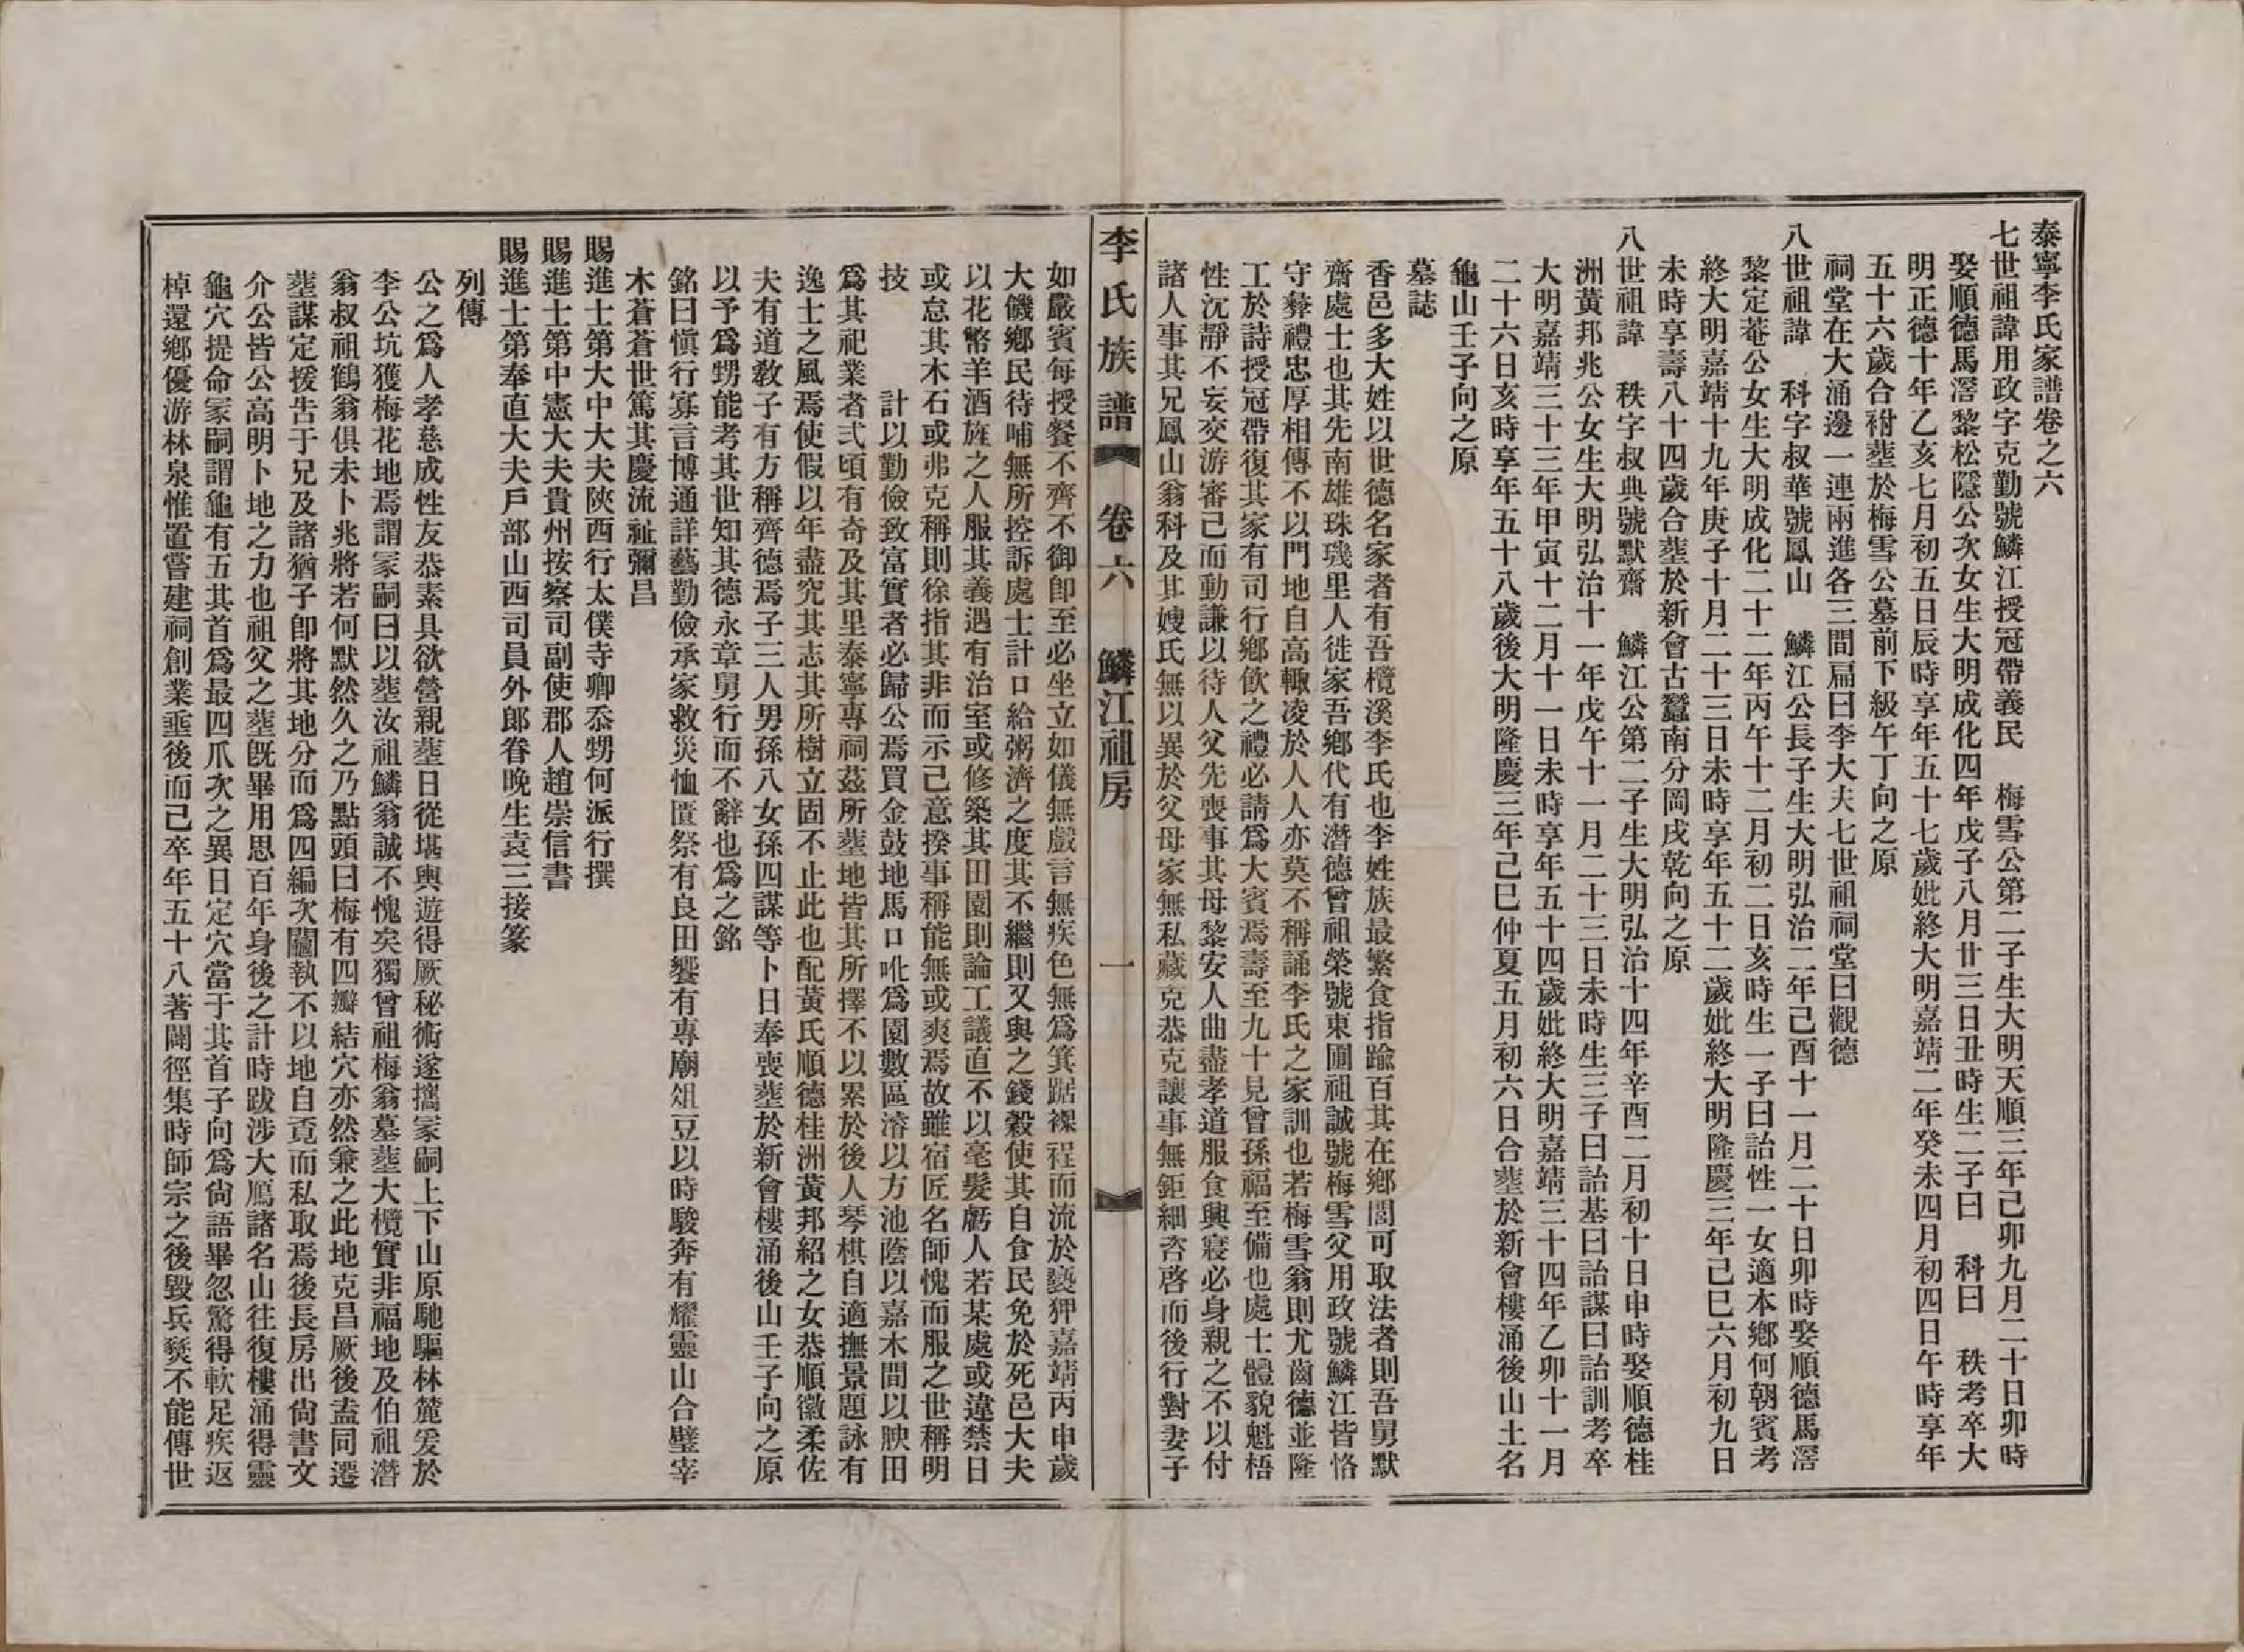 泰寧李氏家譜卷之六
七世祖諱用政字克勤號鱗江授冠帶義民　梅雪公第二子生大明天順三年己卯九月二十日卯時
娶順德馬滘黎松隱公次女生大明成化四年戊子八月廿三日丑時生二子曰　科曰　秩考卒大
明正德十年乙亥七月初五日辰時享年五十七歲妣終大明嘉靖二年癸未四月初四日午時享年
五十六歲合祔塟於梅雪公墓前下級午丁向之原
祠堂在大涌邊一連兩進各三間扁曰李大夫七世祖祠堂曰觀德
八世祖諱　科字叔華號鳳山　鱗江公長子生大明弘治二年己酉十一月二十日卯時娶順德馬滘
黎定菴公女生大明成化二十二年丙午十二月初二日亥時生一子曰詒性一女適本鄉何朝賓考
終大明嘉靖十九年庚子十月二十三日未時享年五十二歲妣終大明隆慶三年己巳六月初九日
未時享壽八十四歲合塟於新會古蠶南分岡戌乾向之原
八世祖諱　秩字叔典號默齋　鱗江公第二子生大明弘治十四年辛酉二月初十日申時娶順德桂
洲黃邦兆公女生大明弘治十一年戊午十一月二十三日未時生三子曰詒基曰詒謀曰詒訓考卒
大明嘉靖三十三年甲寅十二月十一日未時享年五十四歲妣終大明嘉靖三十四年乙卯十一月
二十六日亥時享年五十八歲後大明隆慶三年己巳仲夏五月初六日合塟於新會樓涌後山土名
龜山壬子向之原
墓誌
香邑多大姓以世德名家者有吾欖溪李氏也李姓族最繁食指踰百其在鄉閭可取法者則吾舅默
齋處士也其先南雄珠璣里人徙家吾鄉代有潛德曾祖榮號東圃祖誠號梅雪父用政號鱗江皆恪
守彜禮忠厚相傳不以門地自高轍凌於人人亦莫不稱誦李氏之家訓也若梅雪翁則尤齒德並隆
工於詩授冠帶復其家有司行鄉飲之禮必請爲大賓焉壽至九十見曾孫福至備也處士體貌魁梧
性沉靜不妄交游審己而動謙以待人父先喪事其母黎安人曲盡孝道服食興寢必身親之不以付
諸人事其兄鳳山翁科及其嫂氏無以異於父母家無私藏克恭克讓事無鉅細咨啓而後行對妻子
李氏族譜　卷六　鱗江祖房　一
如嚴賓每授餐不齊不御卽至必坐立如儀無戲言無疾色無爲箕踞祼程而流於褻狎嘉靖丙申歲
大饑鄉民待哺無所控訴處士計口給粥濟之度其不繼則又與之錢穀使其自食民免於死邑大夫
以花幣羊酒旌之人服其義遇有治室或修築其田園則論工議直不以毫髮虧人若某處或違禁日
或怠其木石或弗克稱則徐指其非而示己意揆事稱能無或爽焉故雖宿匠名師愧而服之世稱明
技　　　計以勤儉致富實者必歸公焉買金鼓地馬口吪爲園數區濬以方池蔭以嘉木間以腴田
爲其祀業者弍頃有奇及其里泰寧專祠茲所塟地皆其所擇不以累於後人琴棋自適撫景題詠有
逸士之風焉使假以年盡究其志其所樹立固不止此也配黃氏順德桂洲黃邦紹之女恭順徽柔佐
夫有道敎子有方稱齊德焉子三人男孫八女孫四謀等卜日奉喪塟於新會樓涌後山壬子向之原
以予爲甥能考其世知其德永章舅行而不辭也爲之銘
銘曰愼行寡言博通詳藝勤儉承家救災恤匱祭有良田饗有專廟俎豆以時駿奔有耀靈山合璧宰
木蒼蒼世篤其慶流祉彌昌
賜進士第大中大夫陜西行太僕寺卿忝甥何派行撰
賜進士第中憲大夫貴州按察司副使郡人趙崇信書
賜進士第奉直大夫戶部山西司員外郎眷晚生袁三接篆
列傳
公之爲人孝慈成性友恭素具欲營親塟日從堪輿遊得厥秘術遂攜冢嗣上下山原馳驅林麓爰於
李公坑獲梅花地焉謂冢嗣曰以塟汝祖鱗翁誠不愧矣獨曾祖梅翁墓塟大欖實非福地及伯祖潛
翁叔祖鶴翁俱未卜兆將若何默然久之乃點頭曰梅有四瓣結穴亦然兼之此地克昌厥後盍同遷
塟謀定援吿于兄及諸猶子卽將其地分而爲四編次鬮執不以地自覔而私取焉後長房出尙書文
介公皆公高明卜地之力也祖父之塟旣畢用思百年身後之計時跋涉大鴈諸名山往復樓涌得靈
龜穴提命冢嗣謂龜有五其首爲最四爪次之異日定穴當于其首子向爲尙語畢忽驚得軟足疾返
棹還鄉優游林泉惟置嘗建祠創業埀後而已卒年五十八著闢徑集時師宗之後毀兵燹不能傳世